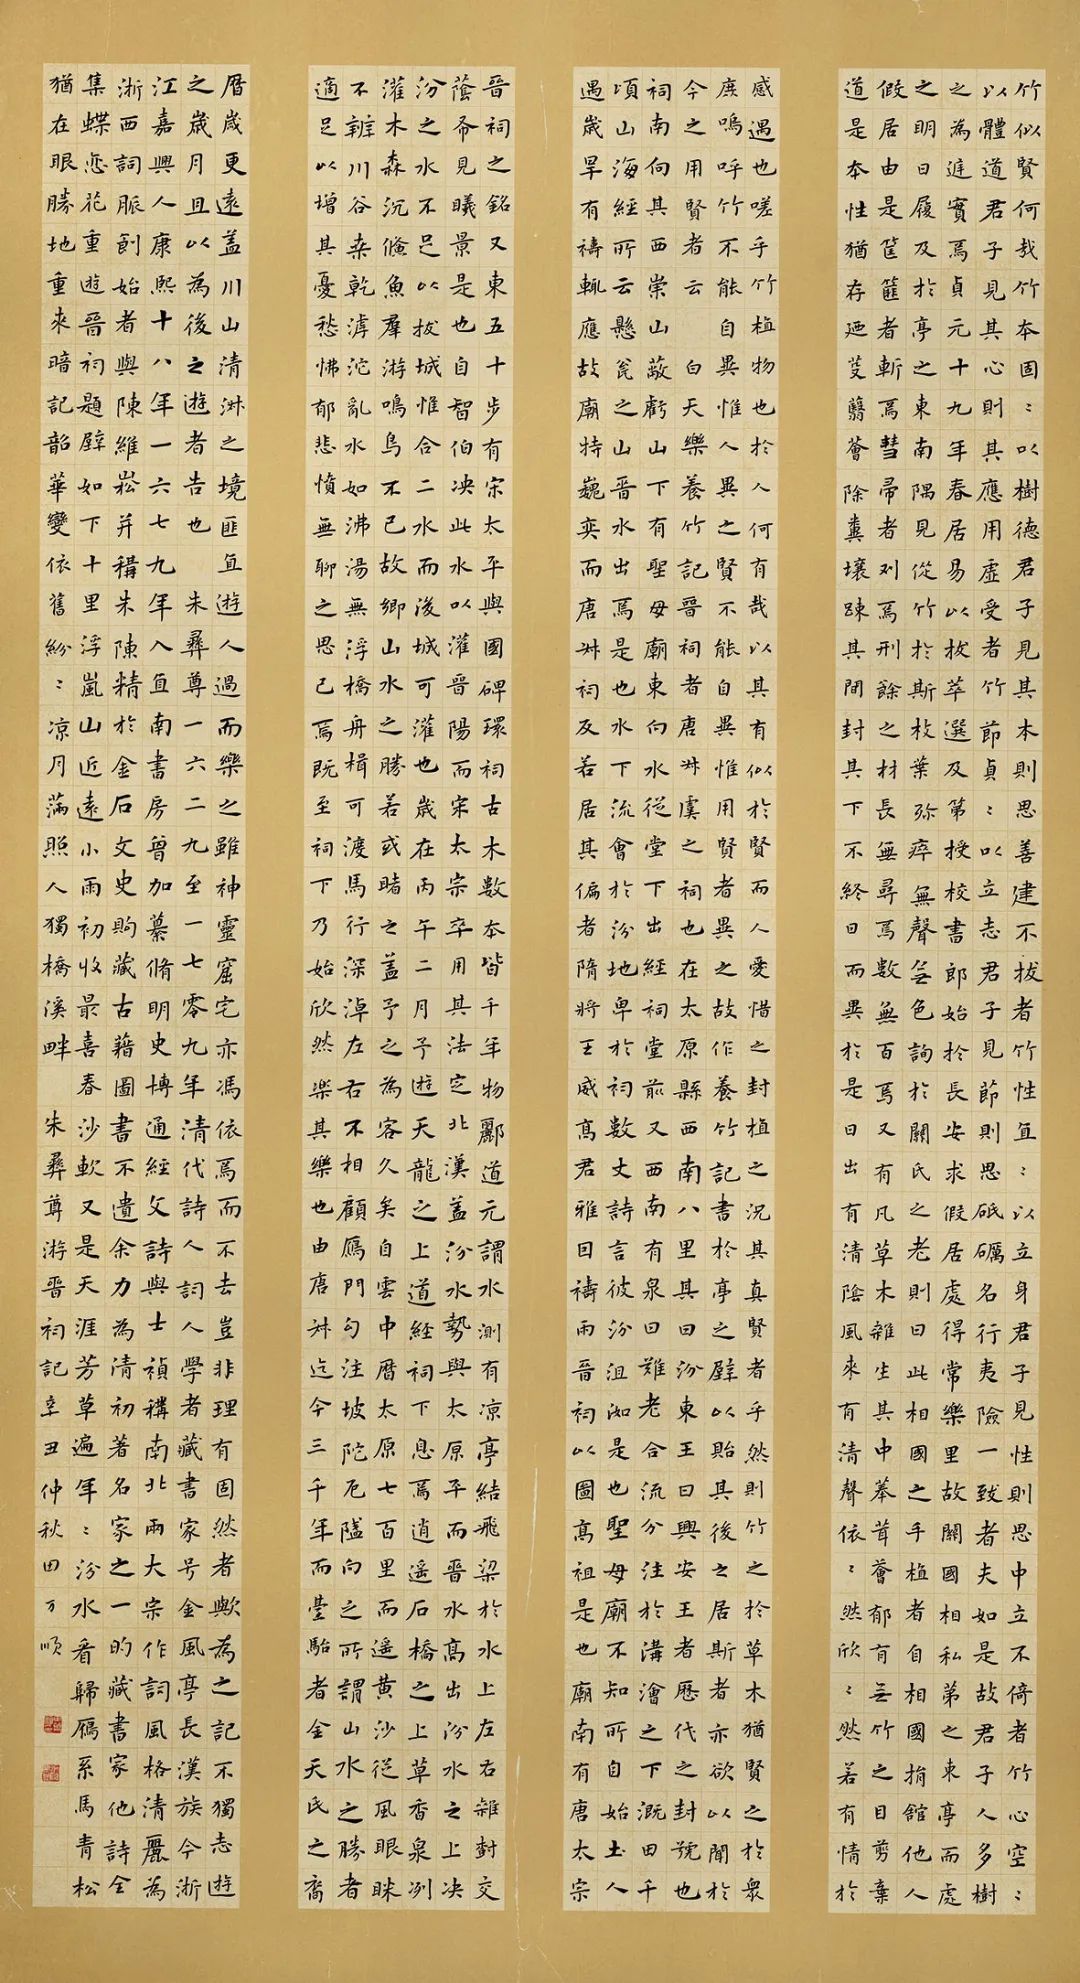 竹似賢何哉竹本固:以樹德君子見其本則思善建不拔者竹性直:以立身君子見性則思中立不倚者竹心空:
以體道君子見其心則其應用虛受者竹節貞:以立志君子見節則思砥礪名行夷險一致者夫如是故君子人多樹
之為庭實焉貞元十九年春居易以拔萃選及第授校書郎始於長安求假居處得常樂里故關國相私第之東亭而處
之明日履及於亭之東南隅見從竹於斯枚葉殄瘁無聲無色詢於關氏之老則曰此相國之手植者自相國捐館他人
假居由是筐篚者斬焉彗帚者刈焉刑餘之材長無尋焉數無百焉又有凡草木雜生其中菶茸薈郁有無竹之目剪棄
道是本性猶存廼芟蘙薈除糞壤踈其間封其下不終日而畢於是日出有清陰風來有清聲依:然欣:然若有情於
感遇也嗟乎竹植物也於人何有哉以其有似於賢而人愛惜之封植之況其真賢者乎然則竹之於草木猶賢之於衆
庶嗚呼竹不能自異惟人異之賢不能自異惟用賢者異之故作養竹記書於亭之壁以貽其後之居斯者亦欲以聞於
今之用賢者云 白天樂養竹記晉祠者唐叔虞之祠也在太原縣西南八里其曰汾東王曰興安王者歷代之封號也
祠南向其西崇山蔽虧山下有聖母廟東向水從堂下出經祠堂前又西南有泉曰難老合流分注於溝澮之下溉田千
頃山海經所云懸瓮之山晉水出焉是也水下流會於汾地卑於祠數丈詩言彼汾沮洳是也聖母廟不知所自始土人
遇歲旱有禱輒應故廟特巍奕而唐叔祠反若居其偏者隋將王威高君雅因禱雨晉祠以圖高祖是也廟南有唐太宗
晉祠之銘又東五十步有宋太平興國碑環祠古木數本皆千年物酈道元謂水測有凉亭結飛梁於水上左右雜對交
蔭希見曦景是也自智伯决此水以灌晉陽而宋太宗卒用其法定北漢蓋汾水勢與太原平而晉水高出汾水之上决
汾之水不足以拔城惟合二水而後城可灌也歲在丙午二月予遊天龍之上道経祠下息焉逍遥石橋之上草香泉冽
灌木森沉儵魚羣游鳴鳥不已故鄉山水之勝若或睹之蓋予之為客久矣自雲中曆太原七百里而遥黄沙從風眼眯
不辨川谷桑乾滹沱亂水如沸湯無浮橋舟楫可渡馬行深淖左右不相顧鴈門勾注坡陀厄隘向之所謂山水之勝者
適足以增其憂愁怫郁悲憤無聊之思已焉既至祠下乃始欣然樂其樂也由唐叔迄今三千年而臺駘者金天氏之裔
曆歲更遠蓋川山清淑之境匪直遊人過而樂之雖神靈窟宅亦馮依焉而不去豈非理有固然者歟為之記不獨志遊
之歲月且以為後之遊者告也 朱彝尊一六二九至一七零九年清代詩人詞人學者藏書家号金風亭長漢族今浙
江嘉興人康熙十八年一六七九年入直南書房曾加纂脩明史博通經文詩與士禎稱南北兩大宗作詞風格清麗為
浙西詞脈創始者與陳維崧并稱朱陳精於金石文史購藏古籍圖書不遺余力為清初著名家之一的藏書家他詩全
集蝶恋花重遊晉祠題壁如下十里浮嵐山近遠小雨初收最喜春沙軟又是天涯芳草遍年:汾水看歸鴈系馬青松
猶在眼勝地重來暗記韶華變依舊紛:凉月滿照人獨橋溪畔 朱彝尊游晋祠記辛丑仲秋田万順